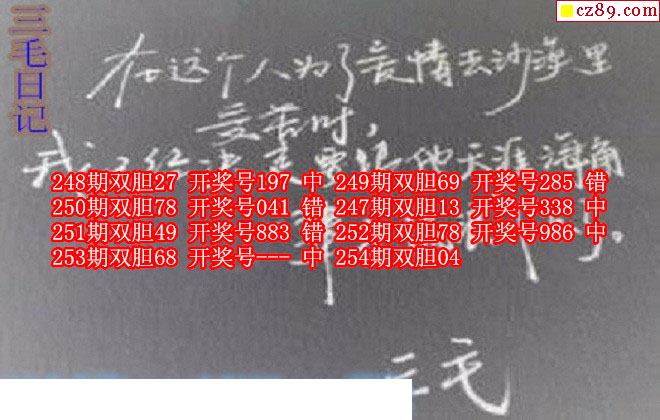 cz89.com
三毛日记
在这个人为了爱情去沙漠里
受苦时,
248期双胆27 开奖号197 中 249期双胆69 开奖号285 错
250期双胆78 开奖号041 错 247期双胆13 开奖号338 中
251期双胆49 开奖号883 错 252期双胆78 开奖号986 中
253期双胆68 开奖号--- 中 254期双胆04
三毛